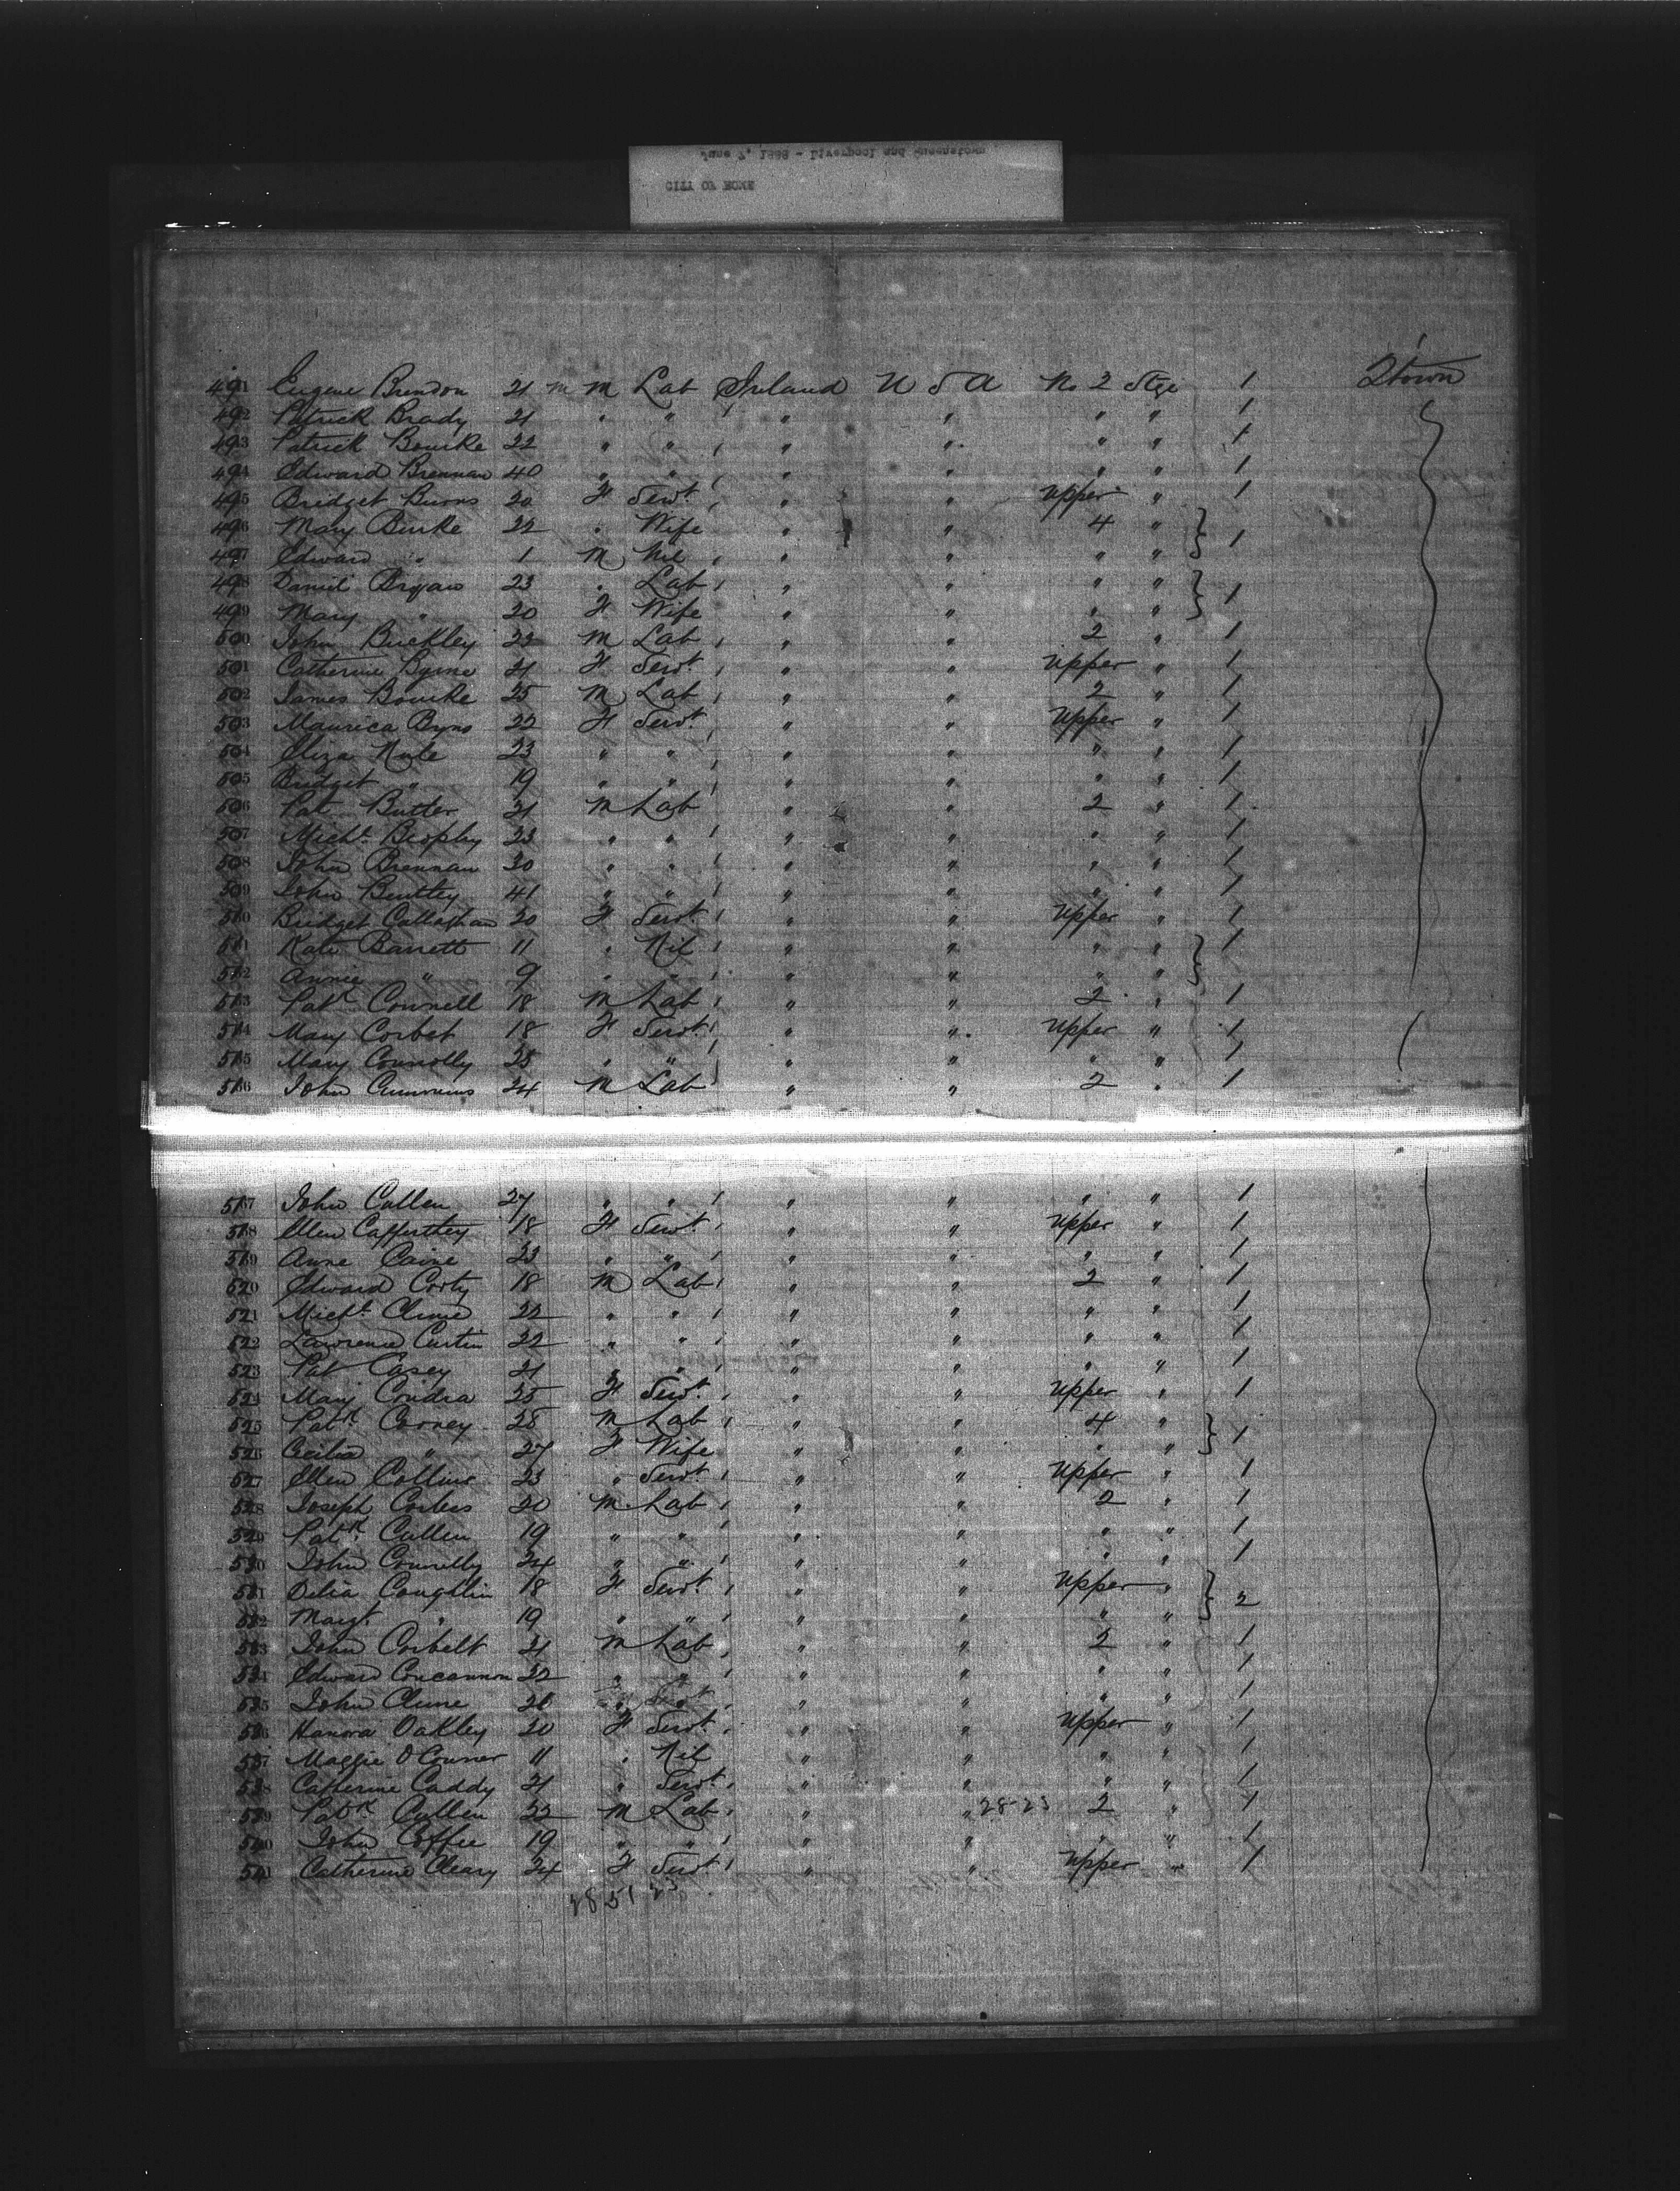 June 7, 1888 - Liverpool and Queenstown
CITY OF ROME
491 Eugene Brendon 21 m m Lab Ireland U S A No 2 Stge 1 Qtown
492 Patrick Brady 21 " " " " " " 1
493 Patrick Bourke 22 " " " " " " 1
494 Edward Brennan 40 " " " " " " 1
495 Bridget Burns 20 F Servt " " Upper " 1
496 Mary Burke 22 " Wife " " 4 " } 1
497 Edward " 1 M Nil " " " "
498 Daniel Bryan 23 " Lab " " " " } 1
499 Mary " 20 F Wife " " " "
500 John Buckley 22 M Lab " " 2 " 1
501 Catherine Byrne 21 F Servt " " Upper " 1
502 James Bourke 25 M Lab " " 2 " 1
503 Maurica Byrns 22 F Servt " " Upper " 1
504 Eliza 23 " " " " " " 1
505 Bridget " 19 " " " " " " 1
506 Pat Butler 21 M Lab " " 2 " 1
507 Michl Brophy 23 " " " " " " 1
508 John Brennan 30 " " " " " " 1
509 John Bentley 41 " " " " " " 1
510 Bridget Callaghan 20 F Servt " " Upper " 1
511 Kate Barrett 11 " Nil " " " " } 1
512 Annie " 9 " " " " " "
513 Patk Connell 18 M Lab " " 2 " 1
514 Mary Corbet 18 F Servt " " Upper " 1
515 Mary Connolly 25 " " " " " " 1
516 John Cummins 24 M Lab " " 2 " 1
517 John Cullen 27 " " " " " " 1
518 Ellen Cafferthey 18 F Servt " " Upper " 1
519 Anne Caine 23 " " " " " " 1
520 Edward Corty 18 M Lab " " 2 " 1
521 Michl Clune 22 " " " " " " 1
522 Lawrence Curtin 22 " " " " " " 1
523 Pat Casey 21 " " " " " " 1
524 Mary Condra 25 F Servt " " Upper " 1
525 Patk Corney 28 M Lab " " 4 " } 1
526 Cecilia " 27 F Wife " " " "
527 Ellen Collins 23 " Servt " " Upper " 1
528 Joseph 20 M Lab " " 2 " 1
529 Patk Cullen 19 " " " " " " 1
530 John Connelly 24 " " " " " " 1
531 Delia Coughlin 18 F Servt " " Upper " } 2
532 Margt " 19 " " " " " "
533 John Corbett 21 M Lab " " 2 " 1
534 Edward Concannon 22 " " " " " " 1
535 John Clune 26 " " " " " 1
536 Hanora Oakley 20 F Servt " " Upper " 1
537 Maggie O'Connor 11 " Nil " " " " 1
538 Catherine Caddy 21 " Servt " " " " 1
539 Patk Cullen 22 M Lab " " 28-23 2 " 1
540 John Coffee 19 " " " " " " 1
541 Catherine Cleary 24 F Servt " " Upper " 1
28 51 23